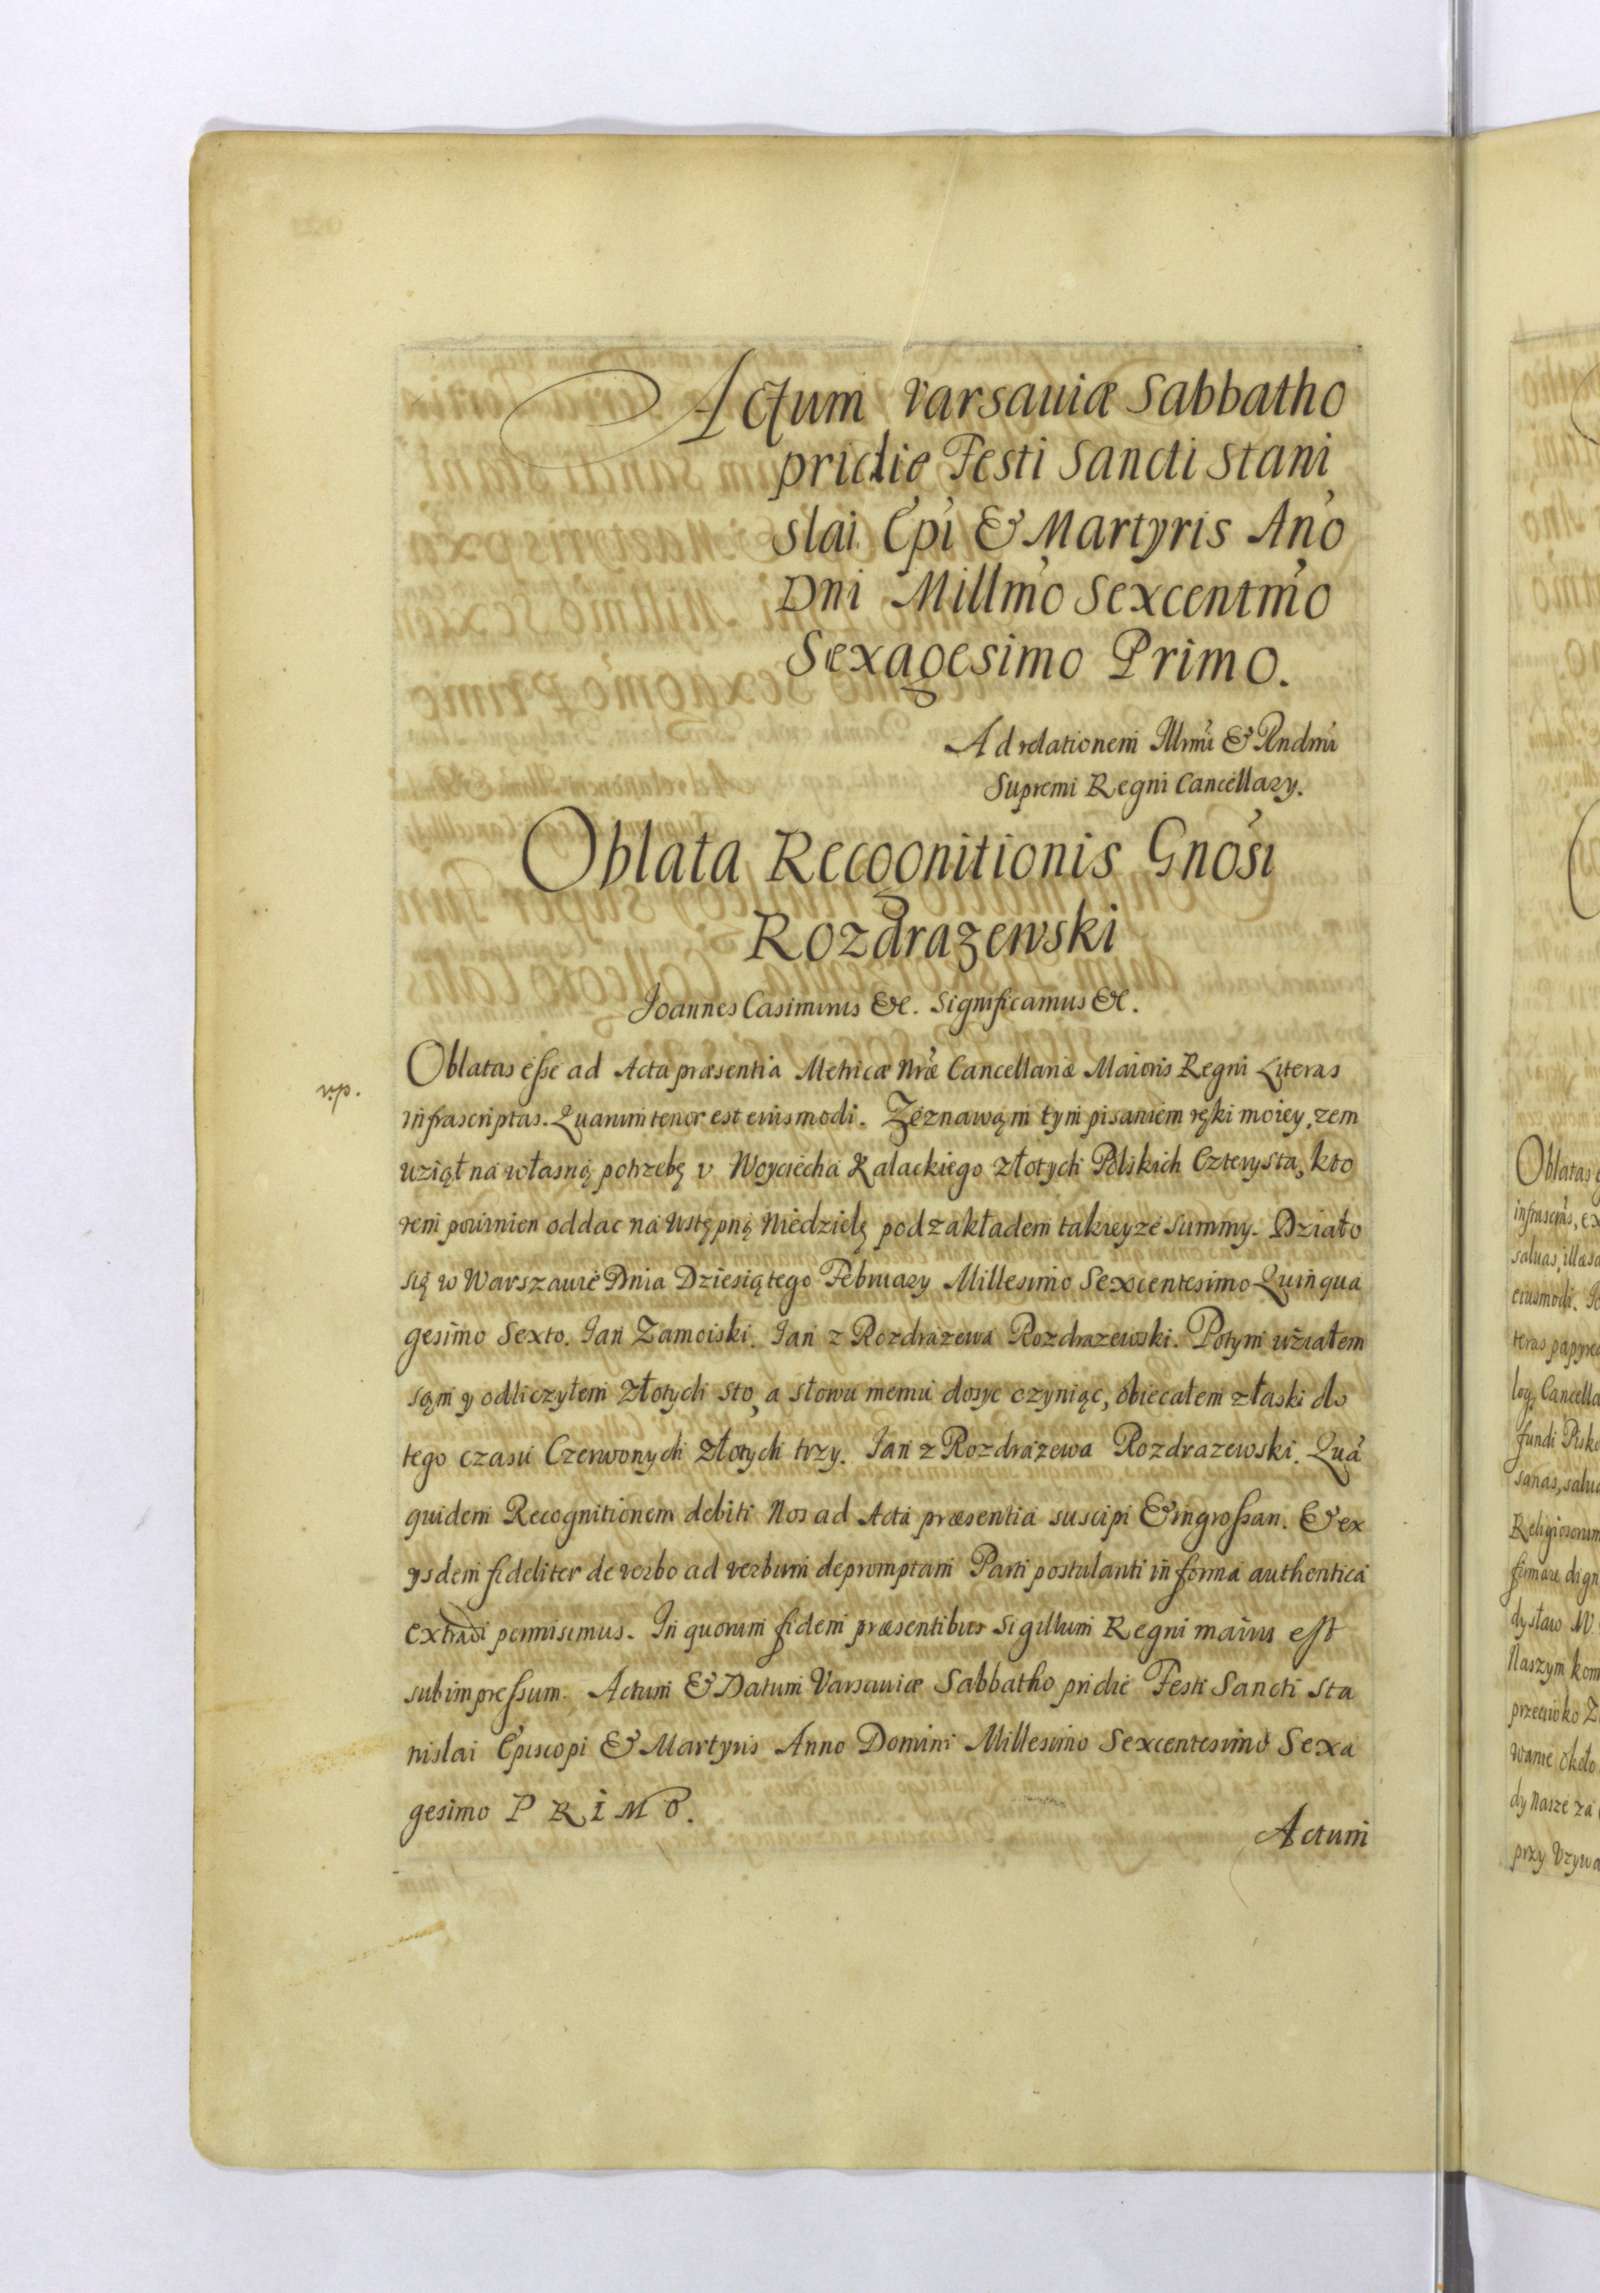 Actum Varsauiæ Sabbatho
pridie Festi Sancti Stani
slai Epi & Martyris Ano
Dni Millmo Sexcentmo
Sexagesimo Primo.
Ad relationem Illmi & Rndmi
Supremi Regni Cancellary.
Oblata Recognitionis Gnosi
Rozdrazewski
Joannes Casimirus &c. Significamus &c.
Oblatas esse ad Acta præsentia Metricæ Nræ Cancellariæ Maioris Regni Literas
infrascriptas. Quarum tenor est eiusmodi. Zeznawąm tym pisaniem ręki moiey, zem
uziął na własną potrzebę v Woyciecha Kalackiego złotych Polskich Czterysta, kto
rem powinien oddac na Wstępną Niedzielę pod zakładem takieyze summy. Działo
się w Warszawie Dnia Dziesiątego February Millesimo Sexcentesimo Quinqua
gesimo Sexto. Jan Zamoiski. Jan z Rozdrażewa Rozdrazewski. Potym wziałem
sąm y odliczyłem złotych sto, a słowu memu dosyc czyniąc, obiecałem złaski do
tego czasu Czerwonych złotych trzy. Jan z Rozdrażewa Rozdrazewski. Quá
quidem Recognitionem debiti Nos ad Acta præsentia suscipi & ingrossari. & ex
ysdem fideliter de verbo ad verbum depromptam Parti postulanti in forma authentica
extradi permisimus. In quorum fidem præsentibus Sigillum Regni maius est
subimpressum. Actum & Datum Varsauiæ Sabbatho pridie Festi Sancti Sta
nislai Episcopi & Martyris Anno Domini Millesimo Sexcentesimo Sexa
gesimo PRIMO.
Actum
Oblatas
saluas, illæsa
eiusmodi. Jo
teras papyrea
Cancella
fundi Pisko
sanas, salua
Religiosorum
firmare dign
dysław
Naszym kom
przeciwko
wanie około
dy Nasze za
przy Vzywa